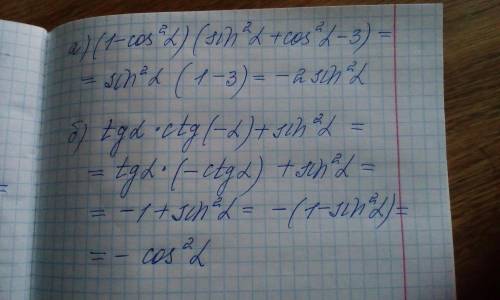 а) (1-cos²α) (sin²α+cos²α-3) =
= sin²α (1-3) = -2sin²α
б) tgα·ctg(-α)+sin²α =
= tgα·(-ctgα) +sin²α =
= -1+sin²α = -(1-sin²α)=
= - cos²α